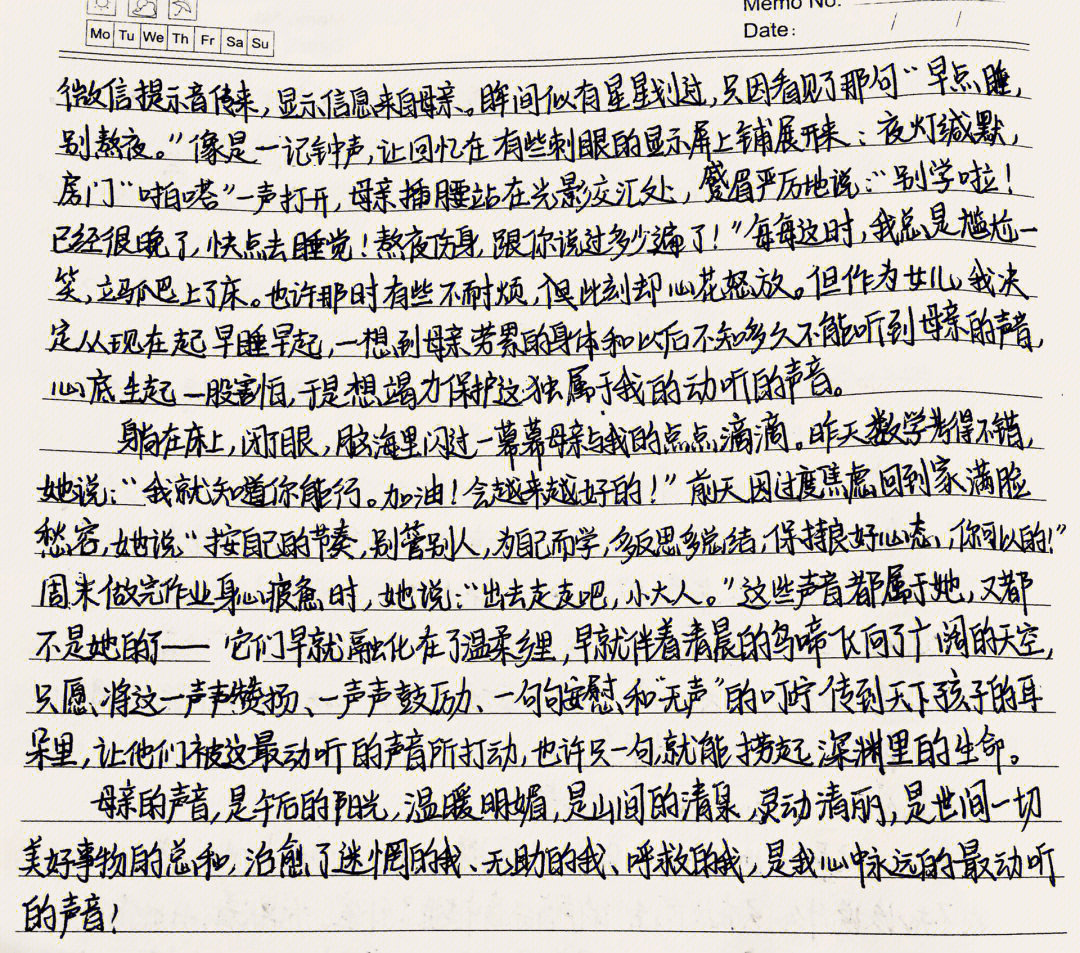 Memo No.
Mo Tu We Th Fr Sa Su
Date: / /
微信提示音传来，显示信息来自母亲。眸间似有星星划过，只因看见了那句“早点睡，
别熬夜。”像是一记钟声，让回忆在有些刺眼的显示屏上铺展开来：夜灯缄默，
房门“啪嗒”一声打开，母亲插腰站在光影交汇处，蹙眉严厉地说：“别学啦！
已经很晚了，快点去睡觉！熬夜伤身，跟你说过多少遍了！”每每这时，我总是尴尬一
笑，立马爬上了床。也许那时有些不耐烦，但此刻却心花怒放。但作为女儿，我决
定从现在起早睡早起，一想到母亲劳累的身体和以后不知多久不能听到母亲的声音，
心底生起一股害怕，于是想竭力保护这独属于我的动听的声音。
身躺在床上，闭了眼，脑海里闪过一幕幕母亲与我的点点滴滴。昨天数学考得不错，
她说：“我就知道你能行。加油！会越来越好的！”前天因过度焦虑回到家满脸
愁容，她说“按自己的节奏，别管别人，为自己而学，多反思多总结，保持良好心态，你可以的！”
周末做完作业身心疲惫时，她说：“出去走走吧，小大人。”这些声音都属于她，又都
不是她的了——它们早就融化在了温柔乡里，早就伴着清晨的鸟啼飞向了广阔的天空，
只愿将这一声声赞扬、一声声鼓励、一句句安慰和“无声”的叮咛传到天下孩子的耳
朵里，让他们被这最动听的声音所打动，也许只一句，就能捞起深渊里的生命。
母亲的声音，是午后的阳光，温暖明媚，是山间的清泉，灵动清丽，是世间一切
美好事物的总和，治愈了迷惘的我、无助的我、呼救的我，是我心中永远的最动听
的声音！